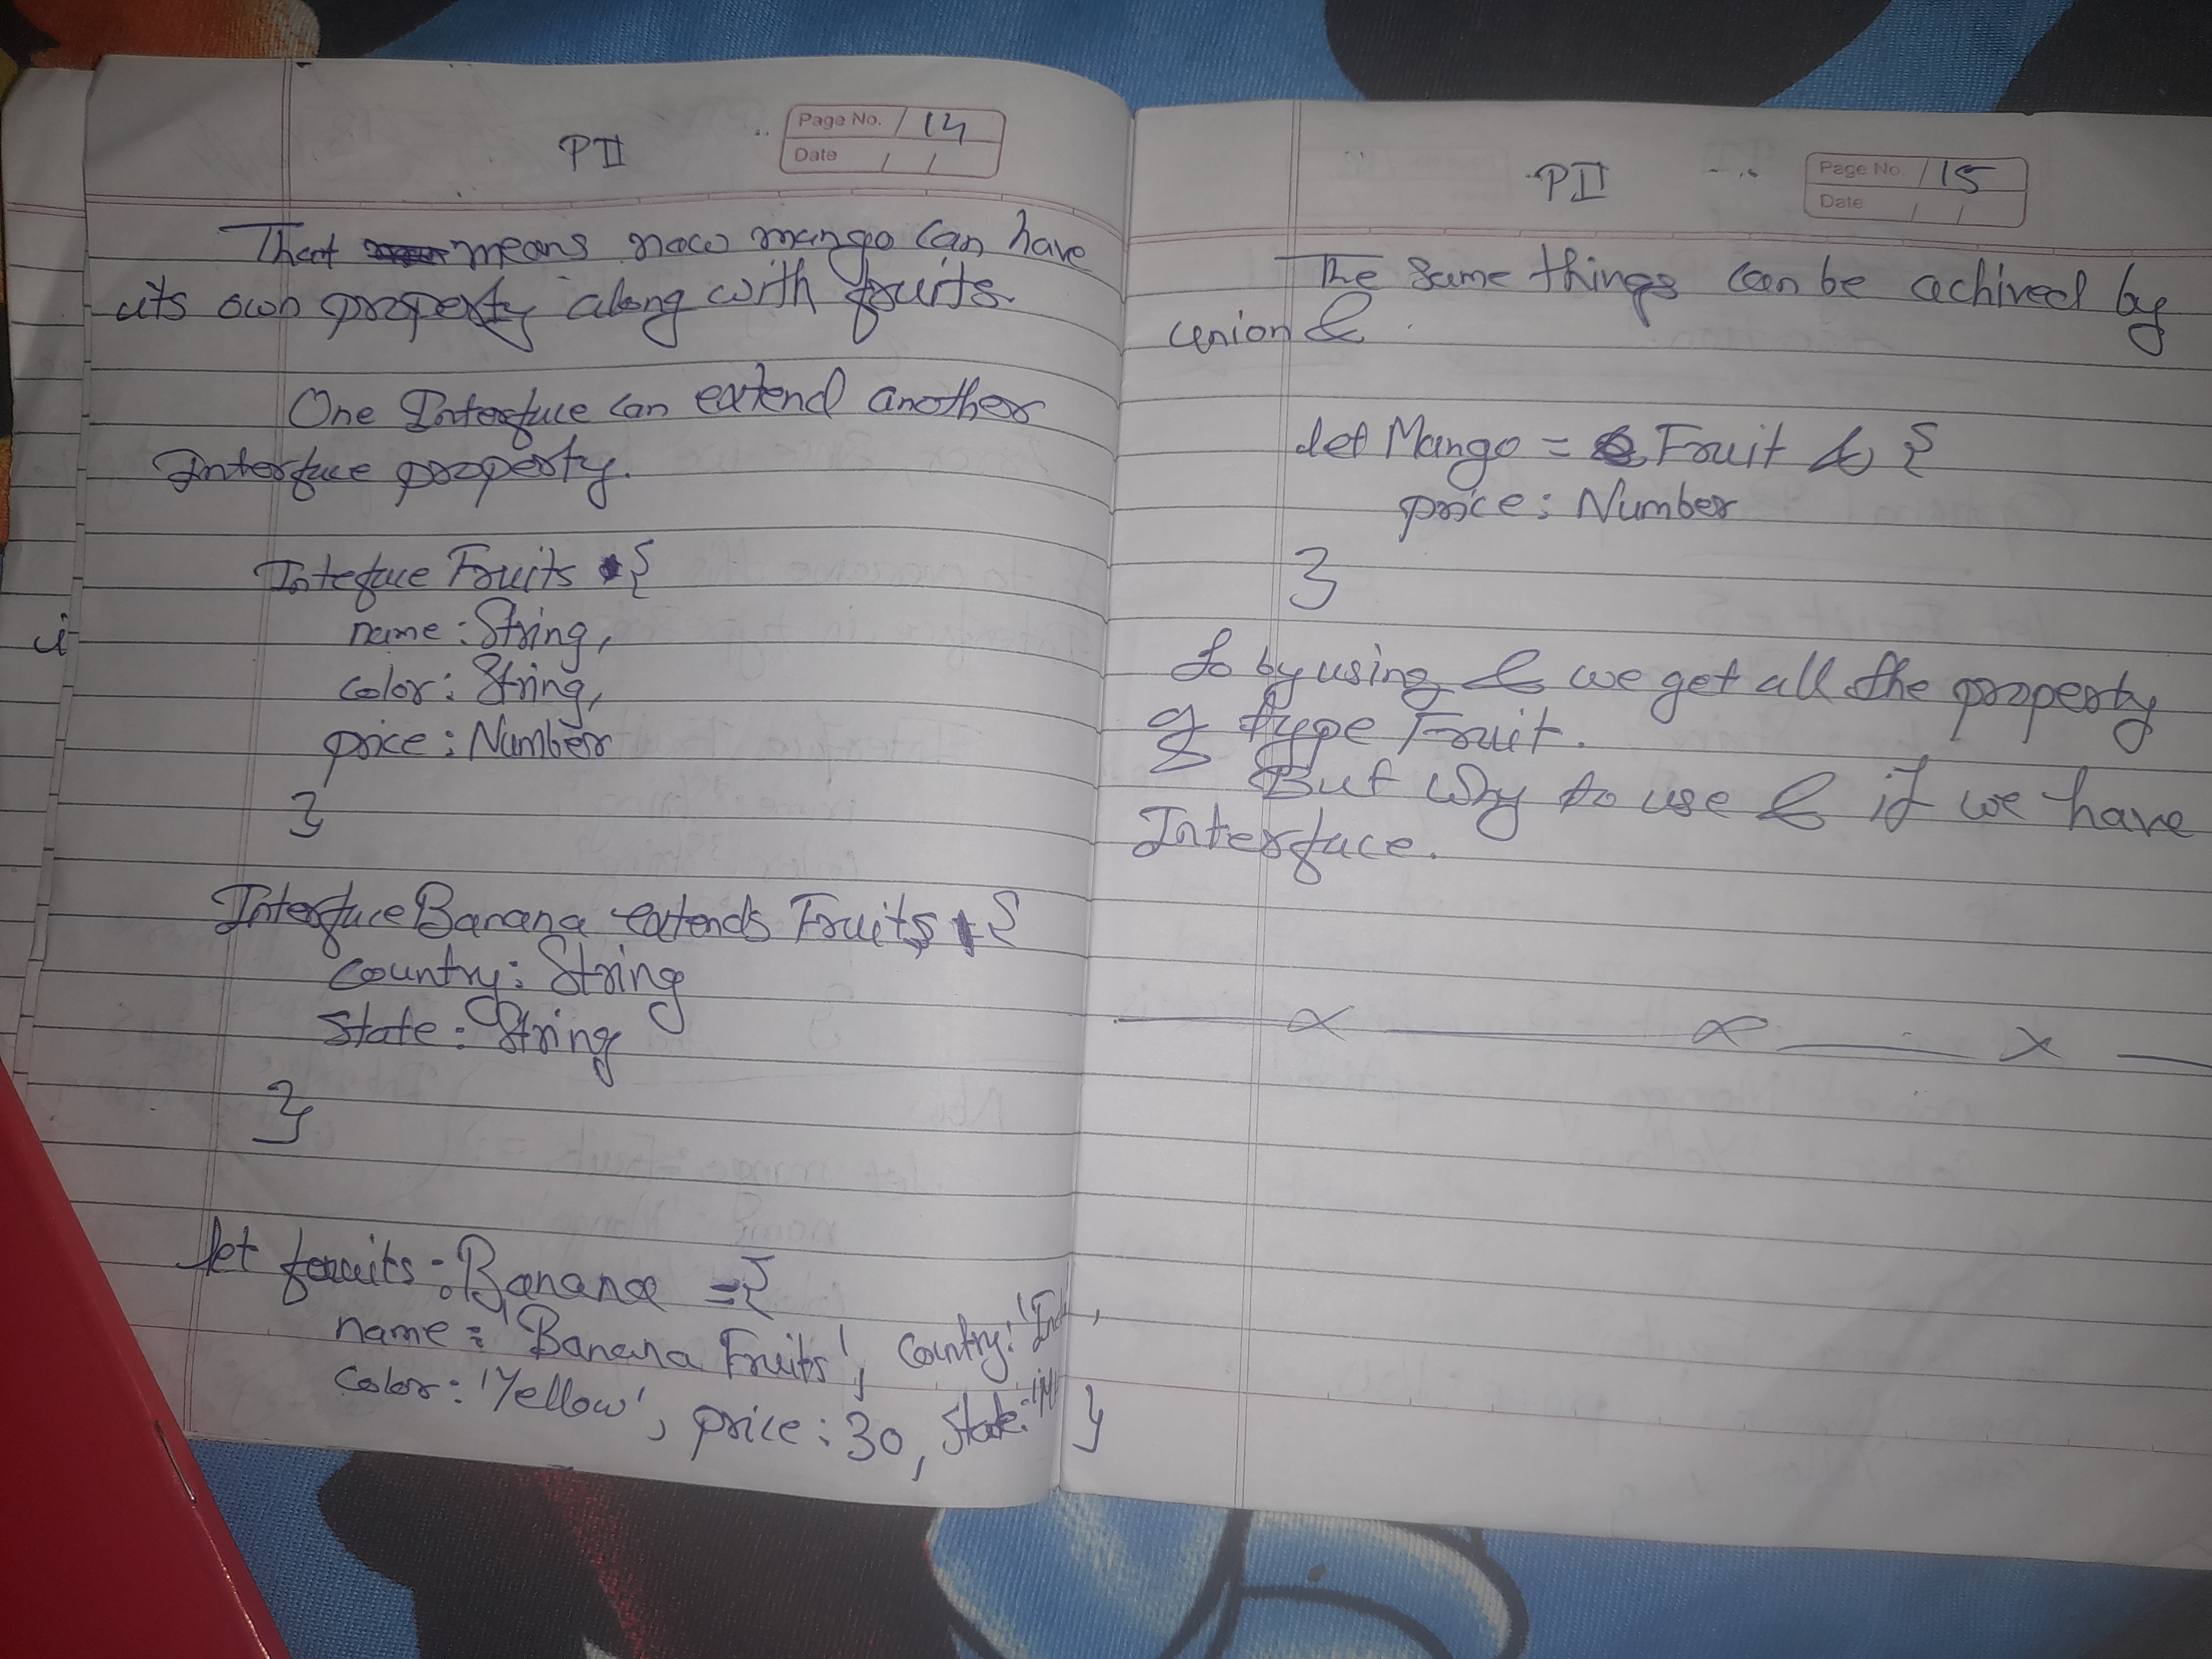 PII
Page No. 14
Date / /
That means now mango can have
its own property along with fruits.
One Interface can extend another
Interface property.
Inteface Fruits {
name : String,
color : String,
price : Number
}
Interface Banana extends Fruits {
Country : String
State : String
}
let fruits : Banana = {
name : 'Banana Fruits', Country :
color : 'Yellow', price : 30, State :
}
PII
Page No. 15
Date / /
The same things can be achived by
union &.
let Mango = Fruit & {
price : Number
}
So by using & we get all the property
of type Fruit.
But why to use & if we have
Interface.